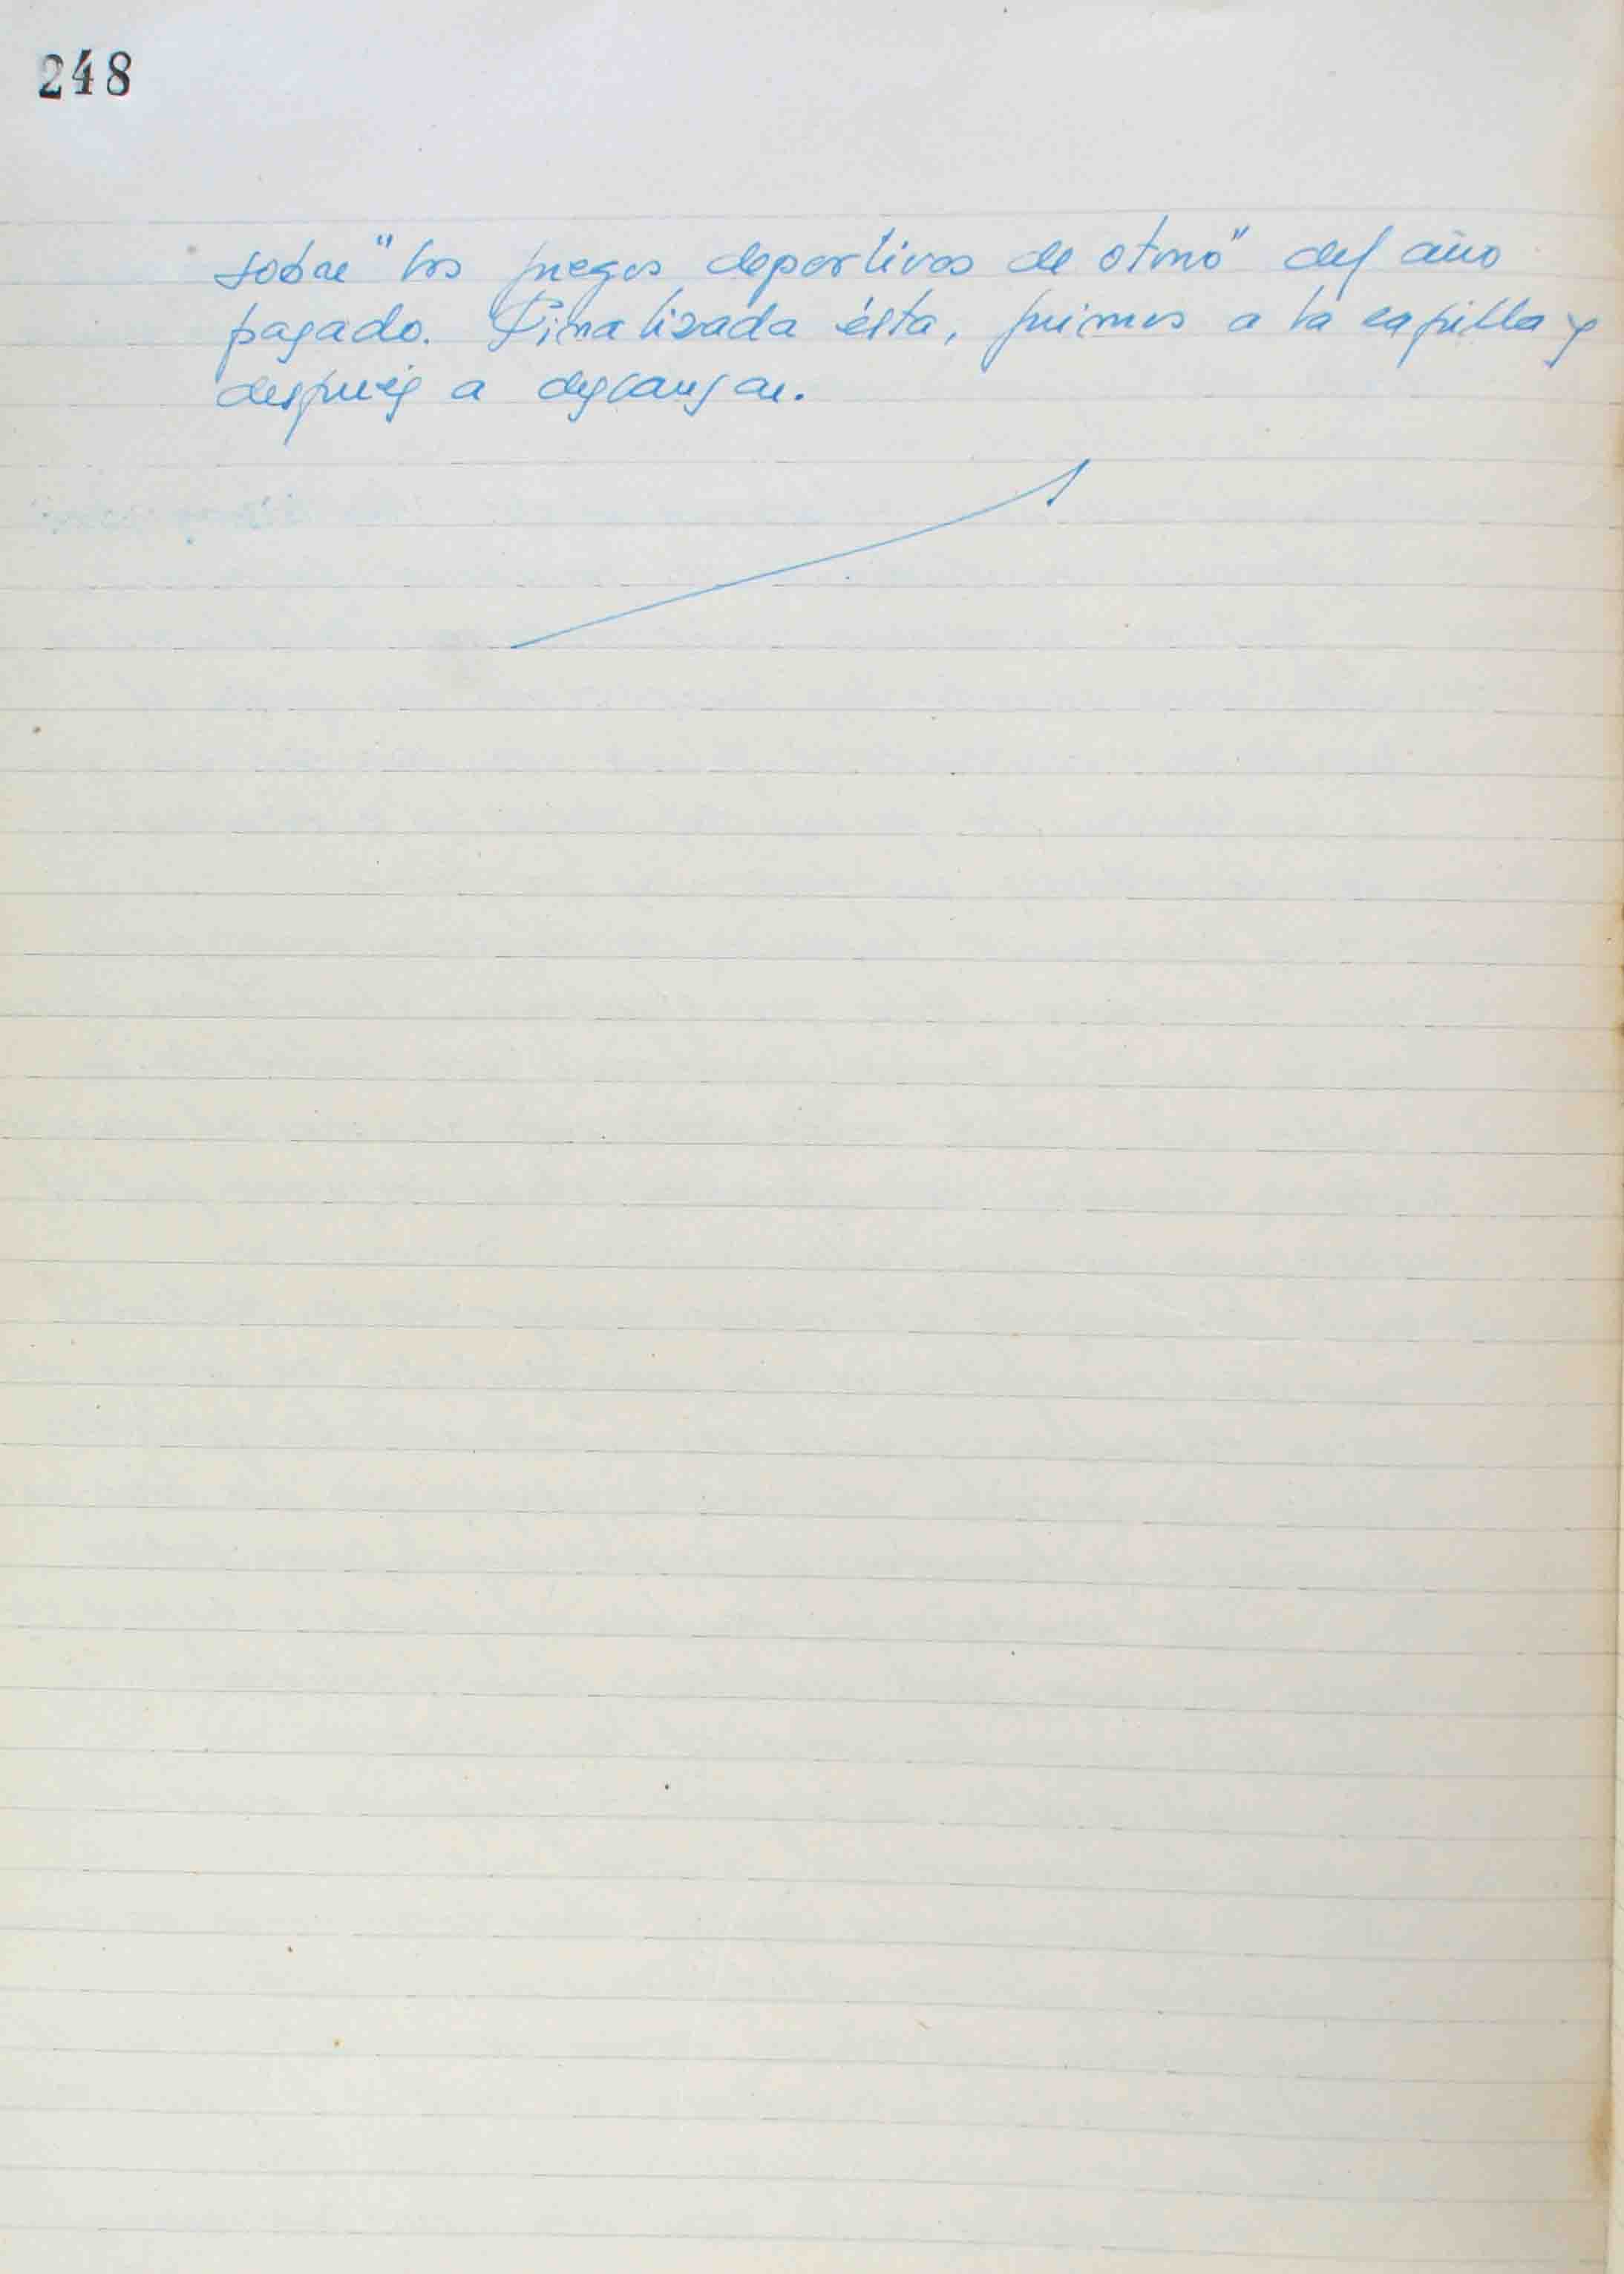 248
sobre "los juegos deportivos de otoño" del año
pasado. Finalizada ésta, fuimos a la capilla y
después a descansar.